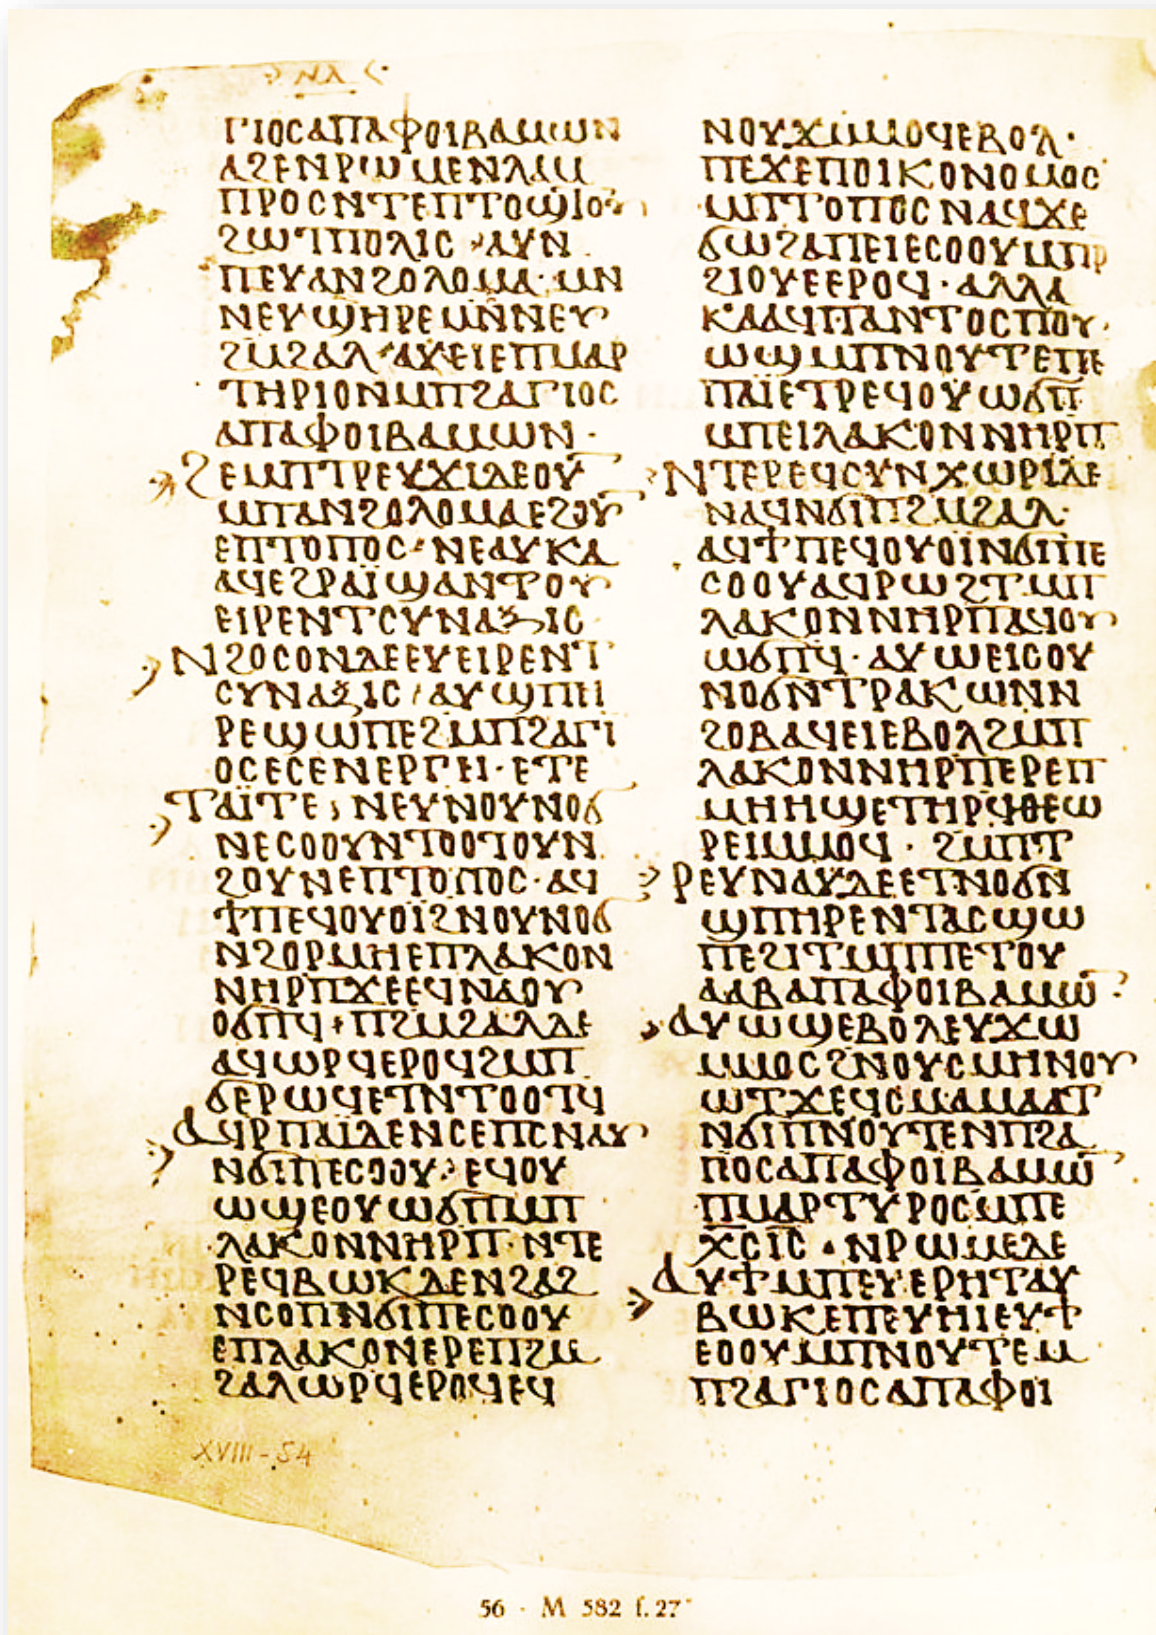 ⲛⲁ
ⲅⲓⲟⲥⲁⲡⲁⲫⲟⲓⲃⲁⲙⲱⲛ
ⲁϩⲉⲛⲣⲱⲙⲉⲛⲗⲁⲙ
ⲡⲣⲟⲥⲛⲧⲉⲡⲧⲟϣ
ⲡⲟⲗⲓⲥ ⲁⲩⲛ
ⲡⲉⲩⲁⲛϩⲟⲗⲟⲙⲁ·ⲙⲛ
ⲛⲉⲩϣⲏⲣⲉⲙⲛⲛⲉⲩ
ϩⲙϩⲁⲗ·ⲁⲩⲉⲓⲉⲡⲙⲁⲣ
ⲧⲏⲣⲓⲟⲛⲙⲡϩⲁⲅⲓⲟⲥ
ⲁⲡⲁⲫⲟⲓⲃⲁⲙⲱⲛ·
ϩⲉⲙⲡⲧⲣⲉⲩϫⲓⲇⲉⲟⲩ
ⲙⲡⲁⲛϩⲟⲗⲟⲙⲁⲉϩⲟⲩ
ⲉⲡⲧⲟⲡⲟⲥ·ⲛⲉⲁⲩⲕⲁ
ⲁϥⲉϩⲣⲁⲓϣⲁⲛⲧⲟⲩ
ⲉⲓⲣⲉⲛⲧⲥⲩⲛⲁⲝⲓⲥ
ⲛϩⲟⲥⲟⲛⲇⲉⲉⲩⲉⲓⲣⲉⲛⲧ
ⲥⲩⲛⲁⲝⲓⲥ ⲁⲩϣⲡⲏ
ⲣⲉϣⲱⲡⲉϩⲙⲡϩⲁⲅⲓ
ⲟⲥⲉⲥⲉⲛⲉⲣⲅⲉⲓ·ⲉⲧⲉ
ⲧⲁⲓⲧⲉ ⲛⲉⲩⲛⲟⲩⲛⲟϭ
ⲛⲉⲥⲟⲟⲩⲛⲧⲟⲟⲧⲟⲩⲛ
ϩⲟⲩⲛⲉⲡⲧⲟⲡⲟⲥ·ⲁϥ
ϯⲡⲉϥⲟⲩⲟⲓϩⲛⲟⲩⲛⲟϭ
ⲛϩⲟⲣⲙⲏⲉⲡⲗⲁⲕⲟⲛ
ⲛⲏⲣⲡϫⲉⲉϥⲛⲁⲟⲩ
ⲟϭⲡϥ·ⲡϩⲙϩⲁⲗⲇⲉ
ⲁϥⲱⲣϥⲉⲣⲟϥϩⲙⲡ
ϭⲉⲣⲱϥⲉⲧⲛⲧⲟⲟⲧϥ
ⲁϥⲣⲡⲁⲓⲇⲉⲛⲥⲉⲡⲥⲛⲁⲩ
ⲛϭⲓⲡⲉⲥⲟⲟⲩ·ⲉϥⲟⲩ
ⲱϣⲉⲟⲩⲱϭⲡⲙⲡ
ⲗⲁⲕⲟⲛⲛⲏⲣⲡ·ⲛⲧⲉ
ⲣⲉϥⲃⲱⲕⲇⲉⲛϩⲁϩ
ⲛⲥⲟⲡⲛϭⲓⲡⲉⲥⲟⲟⲩ
ⲉⲡⲗⲁⲕⲟⲛⲉⲣⲉⲡϩⲙ
ϩⲁⲗⲱⲣϥⲉⲣⲟϥⲉϥ
ⲛⲟⲩϫⲙⲙⲟϥⲉⲃⲟⲗ·
ⲡⲉϫⲉⲡⲟⲓⲕⲟⲛⲟⲙⲟⲥ
ⲙⲡⲧⲟⲡⲟⲥⲛⲁϥϫⲉ
ϭⲱϩⲁⲡⲉⲓⲉⲥⲟⲟⲩⲙⲡⲣ
ϩⲓⲟⲩⲉⲉⲣⲟϥ·ⲁⲗⲗⲁ
ⲕⲁⲁϥⲡⲁⲛⲧⲟⲥⲡⲟⲩ
ⲱϣⲙⲡⲛⲟⲩⲧⲉⲡⲉ
ⲡⲁⲓⲉⲧⲣⲉϥⲟⲩⲱϭⲡ
ⲙⲡⲉⲓⲗⲁⲕⲟⲛⲛⲏⲣⲡ
ⲛⲧⲉⲣⲉϥⲥⲩⲛⲭⲱⲣⲓⲇⲉ
ⲛⲁϥⲛϭⲓⲡϩⲙϩⲁⲗ·
ⲁϥϯⲡⲉϥⲟⲩⲟⲓⲛϭⲓⲡⲉ
ⲥⲟⲟⲩⲁϥⲣⲱϩⲧⲙⲡ
ⲗⲁⲕⲟⲛⲛⲏⲣⲡⲁϥⲟⲩ
ⲱϭⲡϥ·ⲁⲩⲱⲉⲓⲥⲟⲩ
ⲛⲟϭⲛⲧⲣⲁⲕⲱⲛⲛ
ϩⲟⲃⲁϥⲉⲓⲉⲃⲟⲗϩⲙⲡ
ⲗⲁⲕⲟⲛⲛⲏⲣⲡⲉⲣⲉⲡ
ⲙⲏⲏϣⲉⲧⲏⲣϥⲑⲉⲱ
ⲣⲉⲓⲙⲙⲟϥ·ϩⲙⲡⲧ
ⲣⲉⲩⲛⲁⲩⲇⲉⲉⲧⲛⲟϭⲛ
ϣⲡⲏⲣⲉⲛⲧⲁⲥϣⲱ
ⲡⲉϩⲓⲧⲙⲡⲡⲉⲧⲟⲩ
ⲁⲁⲃⲁⲡⲁⲫⲟⲓⲃⲁⲙⲱ̅
ⲁⲩⲱϣⲉⲃⲟⲗⲉⲩϫⲱ
ⲙⲙⲟⲥϩⲛⲟⲩⲥⲙⲏⲛⲟⲩ
ⲱⲧϫⲉϥⲥⲙⲁⲙⲁⲁⲧ
ⲛϭⲓⲡⲛⲟⲩⲧⲉⲛⲡϩⲁ
ⲅⲓⲟⲥⲁⲡⲁⲫⲟⲓⲃⲁⲙⲱ̅
ⲡⲙⲁⲣⲧⲩⲣⲟⲥⲙⲡⲉ
ⲭ̅ⲥ̅ⲓ̅ⲥ̅·ⲛⲣⲱⲙⲉⲇⲉ
ⲁⲩϯⲙⲡⲉⲩⲉⲣⲏⲧⲁⲩ
ⲃⲱⲕⲉⲡⲉⲩⲏⲓⲉⲩϯ
ⲉⲟⲟⲩⲙⲡⲛⲟⲩⲧⲉⲙ
ⲡϩⲁⲅⲓⲟⲥⲁⲡⲁⲫⲟⲓ
XVIII-54
56 · M 582 f. 27ʳ